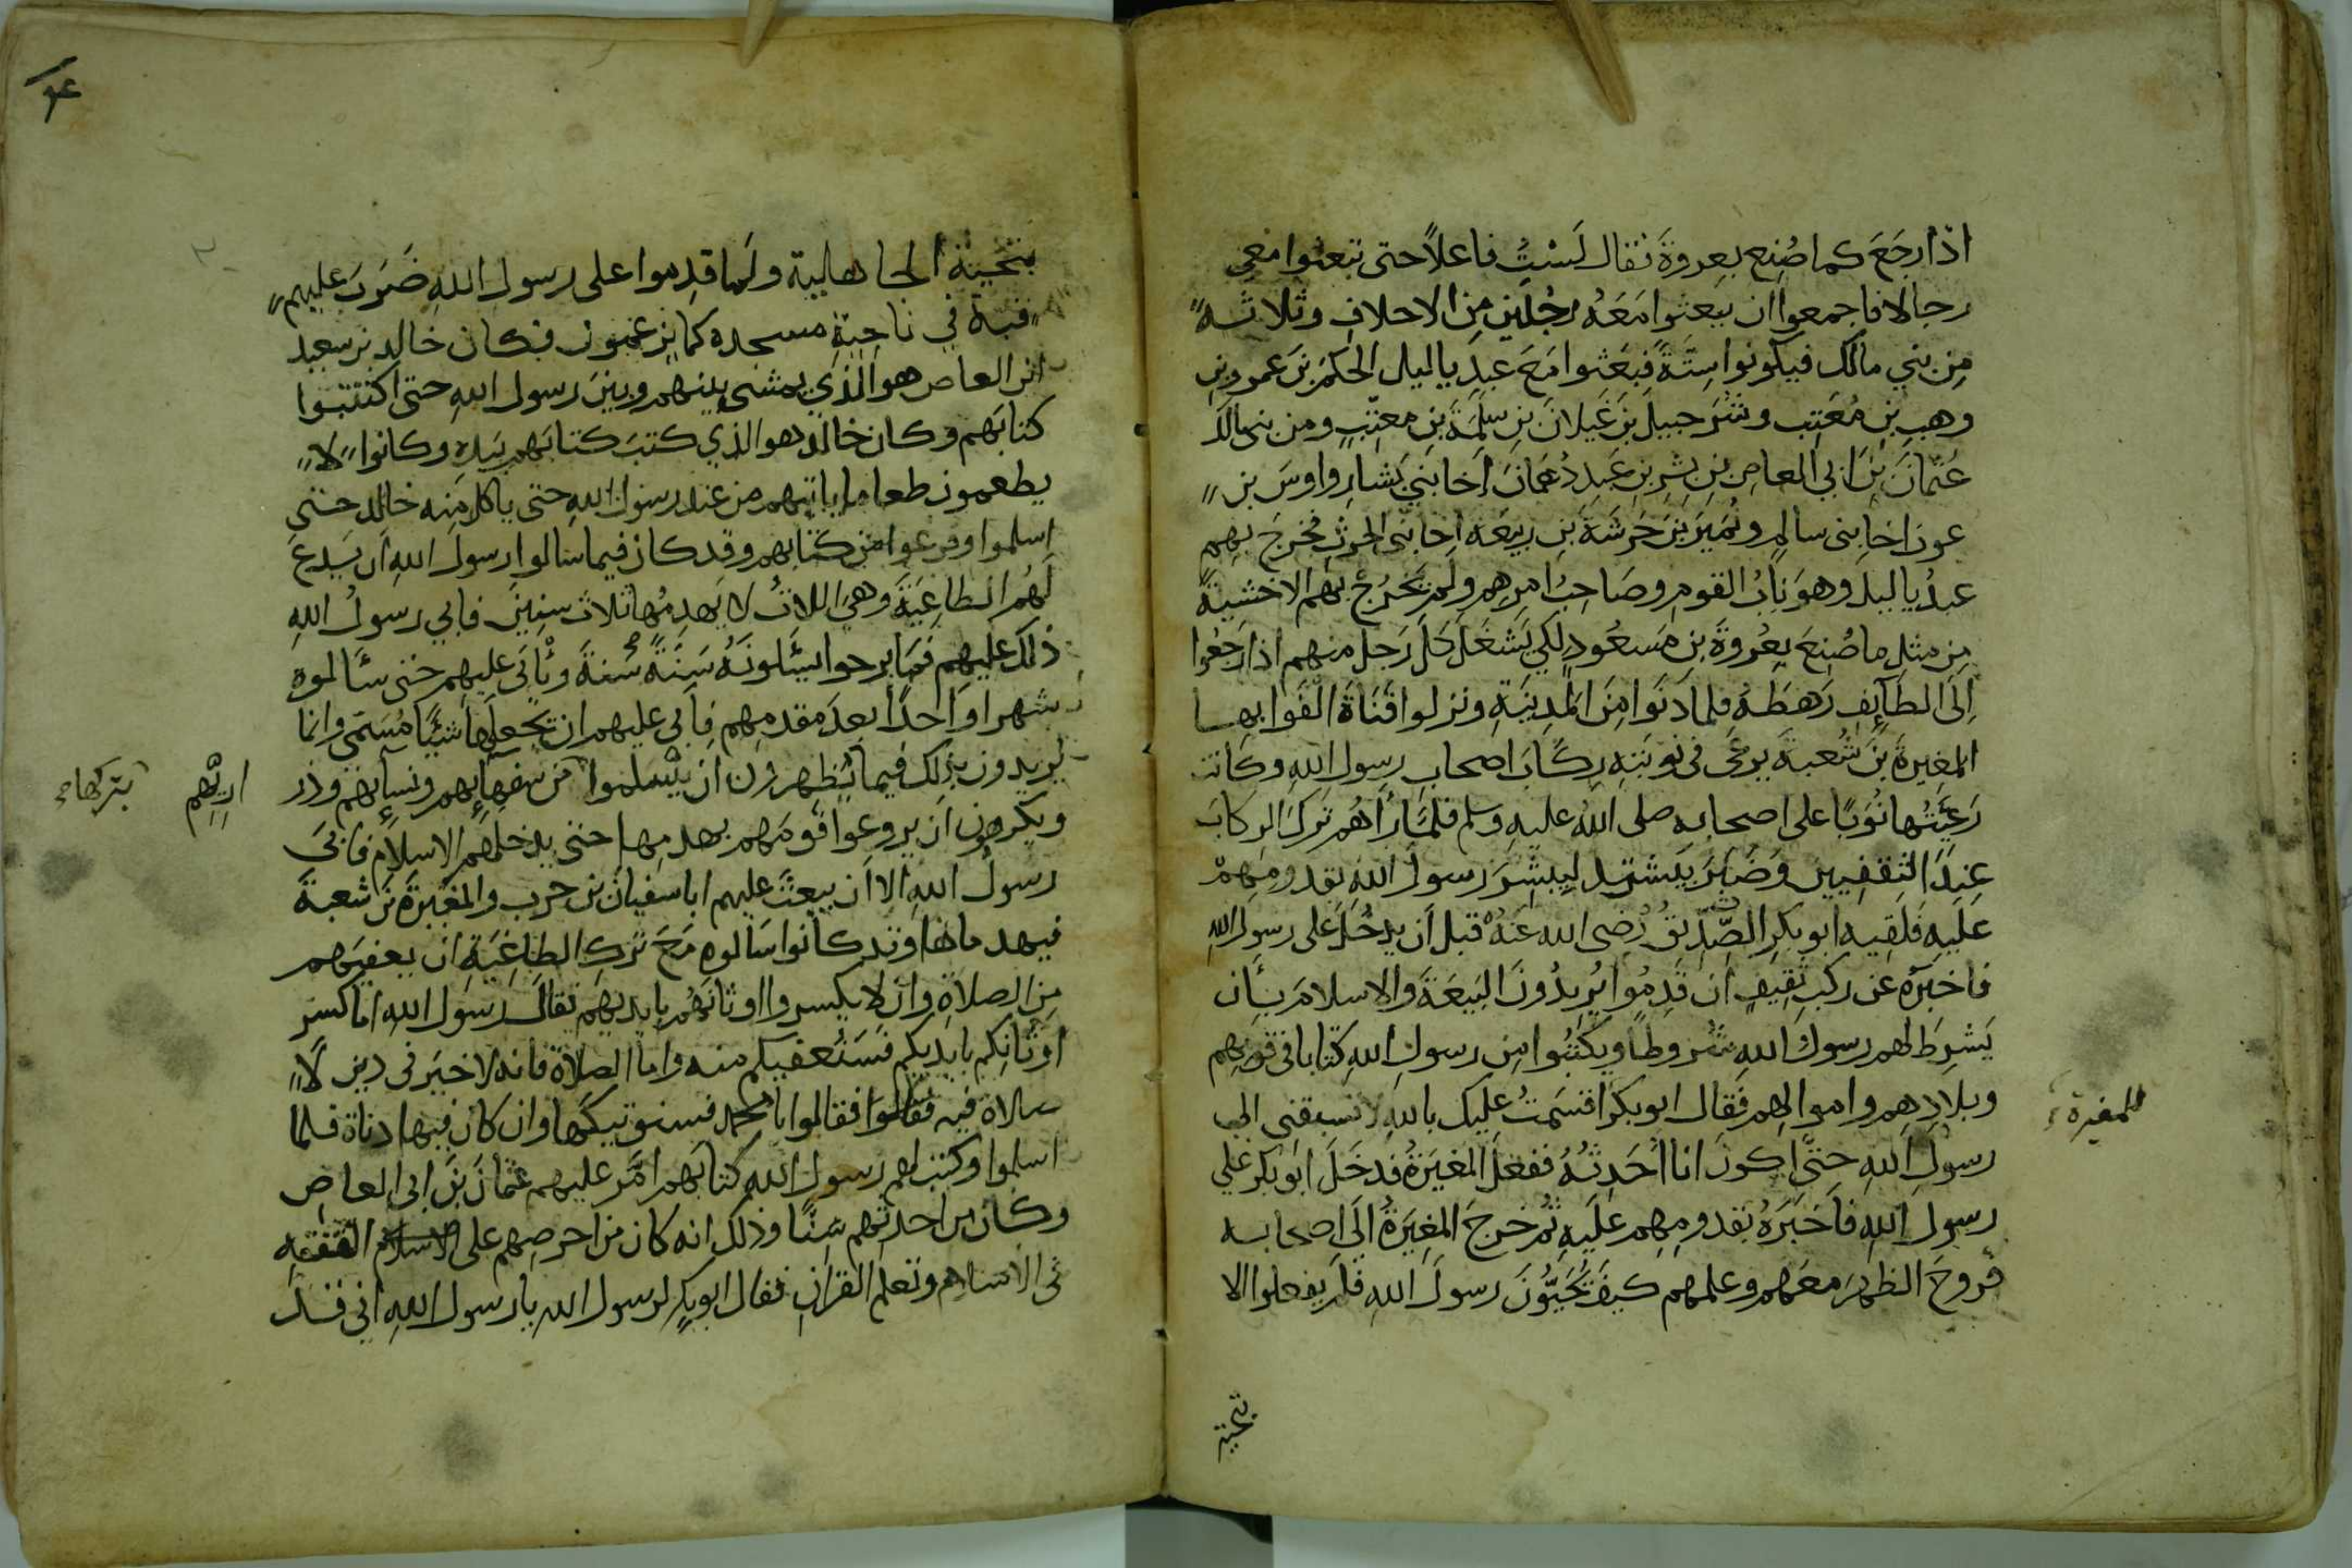 اذا رجَعَ كما صُنِع بعروةَ فقال لَسْتُ فاعلاً حتى تبعثوا معي
رجالا فاجمعوا ان يبعثوا مَعَهُ رجُلين مِن الاحلافِ وثلاثه
مِن بني مالك فيكونوا سِتَّةً فبعَثوا مَعَ عبدِ ياليل الحكمَ بنَ عمرو بنِ
وهبِ بنِ مُعَتِب وشرَحبيلَ بنَ غَيلانَ بنِ سَلِمَةَ بنِ معتِّبٍ ومن بني مالك
عُثمانَ بنَ ابي العاصِ بنِ بِشِرِ بنِ عَبدِ دُهمَانَ اَخا بَني يَشارٍ واوسَ بن
عوف اخا بني سالمٍ ونُميرَ بنَ خَرشَةَ بنِ ربيعَه اخا بَني الحرثِ فخرجَ بهِم
عبدُ ياليل وهوَ نابُ القومِ وصَاحِبُ امرِهِم ولم يَخرُجْ بهم الا خشيَةً
مِن مثلِ ما صُنِعَ بعُروةَ بنِ مَسعُودٍ لكي يَشغَلَ كلَّ رَجل منهم اذا رجَعوا
اِلَى الطَآئِفِ رَهطَهُ فلما دنَوا مِنَ المدِينَةِ ونزلوا قنَاةَ القَوا بها
المغِيرةَ بنَ شُعبةَ يرعَى في نوبتِهِ رِكابَ اصحابِ رسولِ اللهِ وكَانت
رَعيَتُها نُوَبًا على اصحابه صلى اللهُ عليهِ وسلم فلمَّا رأهُم تركَ الركابَ
عِندَ الثقفِيين وضَبَرَ يَشتد ليبشِرَ رسولَ اللهِ بقدومِهِمْ
علَيهِ فَلقِيه ابو بكرٍ الصِّدّيقُ رضي الله عَنهُ قبل اَن يدخُلَ على رسولِ اللهِ
فاخبَرَه عن ركبِ ثقِيفٍ اَن قَدِمُوا يُرِيدُونَ البَيعَةَ والاسلامَ بِأن
يَشرِطَ لهم رسولُ اللهِ شروطاً ويكتبُوا مِن رسولِ اللهِ كتابا في قومِهم
وبلادِهم واموالهِم فَقال ابو بكر اقسَمتُ عليك باللهِ لا تسبقني الى
للمغيرة
رسولِ اللهِ حتَّى اكونَ انا اُحَدِثُهُ ففعَل المغيَرةُ فدخَلَ ابو بكر على
رسولِ اللهِ فاَخبَرَهُ بقدومِهِم علَيهِ ثُم خرجَ المغِيَرةُ الَى اصحابه
فرَوحَ الظهرَ معَهم وعلمهم كيفَ يُحَيُّونَ رسولَ اللهِ فلم يفعلوا الا
بتحية
بتحيَّة الجاهلية ولَما قدِموا على رسولِ اللهِ ضَرَبَ عليهم
قبة في ناحِيَةِ مسجدِه كما يزعمون فكان خالد بن سعيد
ابن العاص هو الذِي يمشى بينهم وبينَ رسول اللهِ حتى اكتتبُوا
كتابَهم وكان خالد هو الذي كتبَ كتابَهم بيَده وكانوا لا
يطعمون طعاما ياتيهم من عند رسول اللهِ حتى ياكل منه خالد حتى
اسلموا وفرغوا من كتابهم وقد كان فيما سالوا رسولَ اللهِ اَن يَدعَ
لَهُم الطاغِيَةَ وهيَ اللاتُ لا يَهدِمُها ثلاث سِنِينَ فابي رسولُ اللهِ
ذلك علَيهم فمَا برحوا يسئلونَهُ سَنَةً سَنةً ويأبى عليهِم حتى سئالوه
شهرا واحدًا بعدَ مقدمِهم فابى عليهم ان يجعلها شيئًا مُسَمَّى وانما
يريدون بذلك فيما يُظهرون ان يسلموا من سفهآئِهم ونسآئِهم وذر
اريِّهِم
بتركها
ويكرهون اَن يروعوا قومَهم بهدمِها حتى يدخلهم الاسلام فابَى
رسولُ اللهِ الا اَن يبعثَ عليهم ابا سفيانَ بن حرب والمغيَرةَ بنَ شعبةَ
فيهدماها وقد كانوا سَالوه مَعَ تركِ الطاغِيَةِ ان يعفيَهم
مِن الصلاةِ وان لا يكسروا اوثانَهُم بايديهم فقال رسول اللهِ اما كسر
اوثانِكم بايديكم فسَنُعفيكم منه واما الصلاة فانه لا خيَر في دين لا
صلاة فيه فقالوا يا محمد فسنوتيكَها وان كان فيها دناة فلما
اسلموا وكتب لهم رسول اللهِ كتابَهم امَّر عليهم عثمانَ بنَ ابي العاصِ
وكان من احدثهم سِنًّا وذلك انه كان من احرصِهم على التفقه
في الاسلام وتعلم القرانِ فقال ابو بكرٍ لرسول الله يا رسول اللهِ اني قد